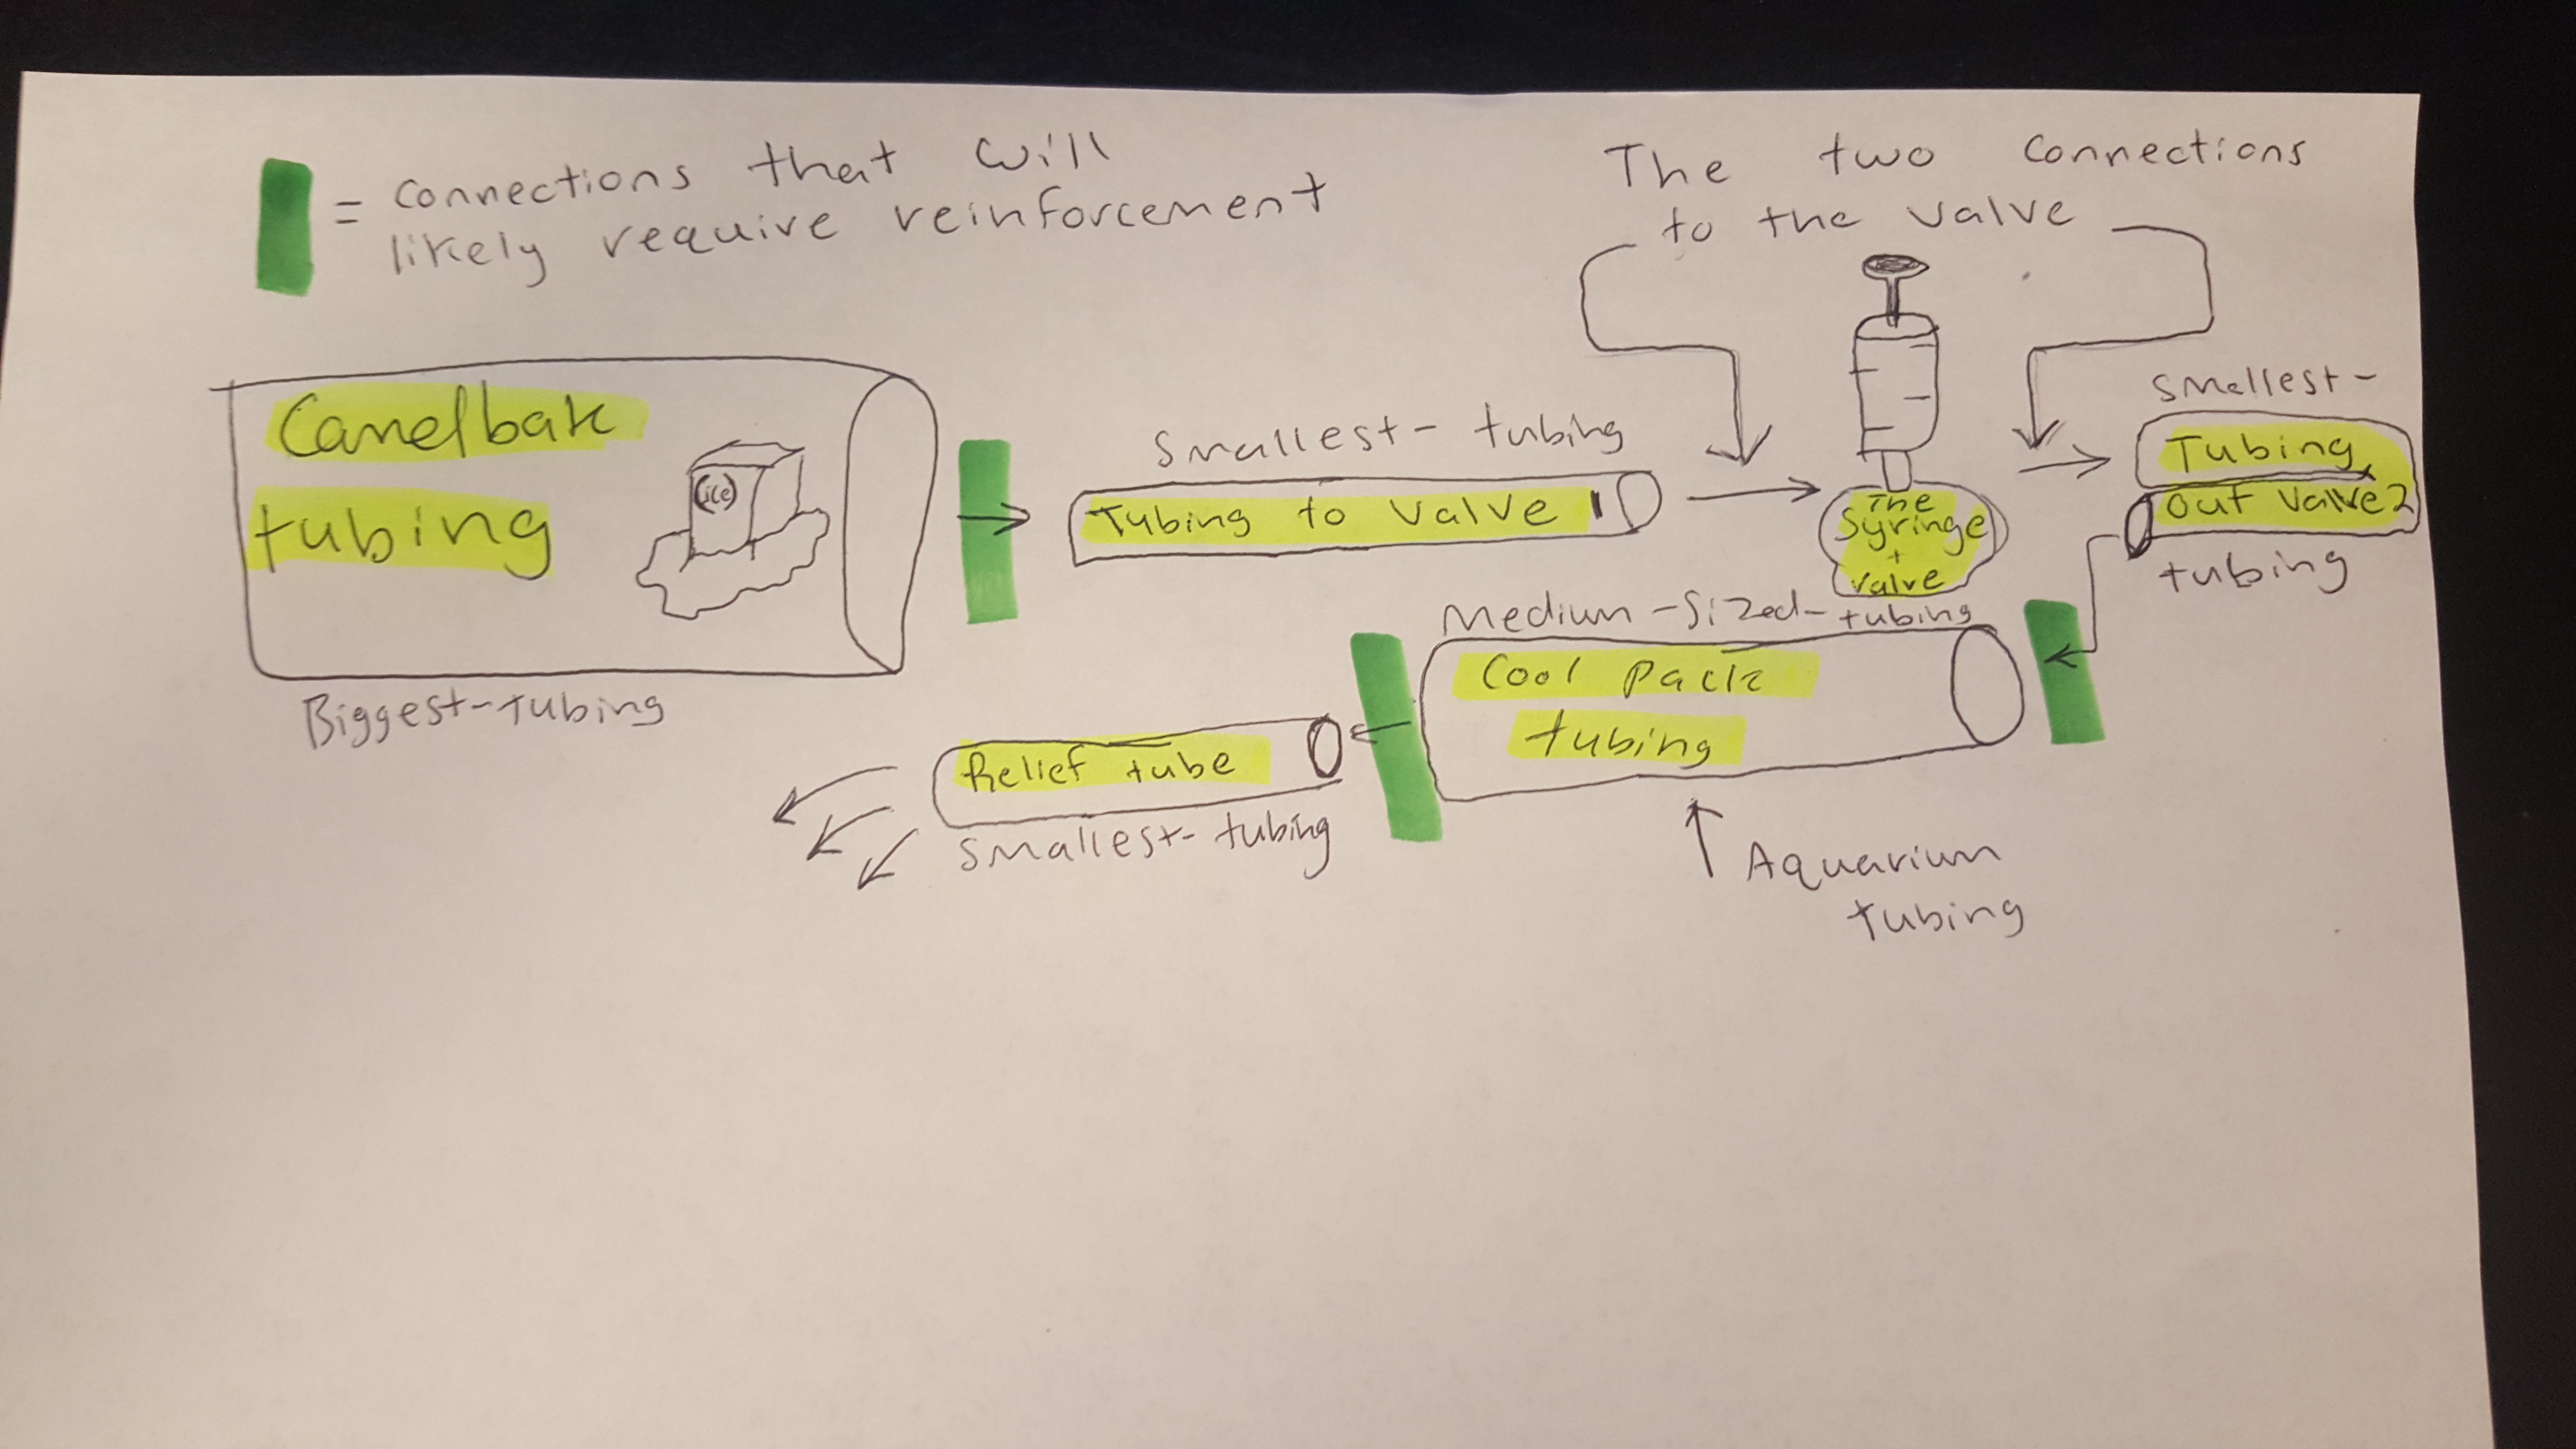 = connections that will
likely require reinforcement
The two connections
to the valve
Camelbak
tubing
(ice)
Biggest-tubing
smallest- tubing
Tubing to valve
The
Syringe
+
valve
smallest-
Tubing
out valve
tubing
Medium-sized-tubing
Cool pack
tubing
Relief tube
smallest- tubing
Aquarium
tubing